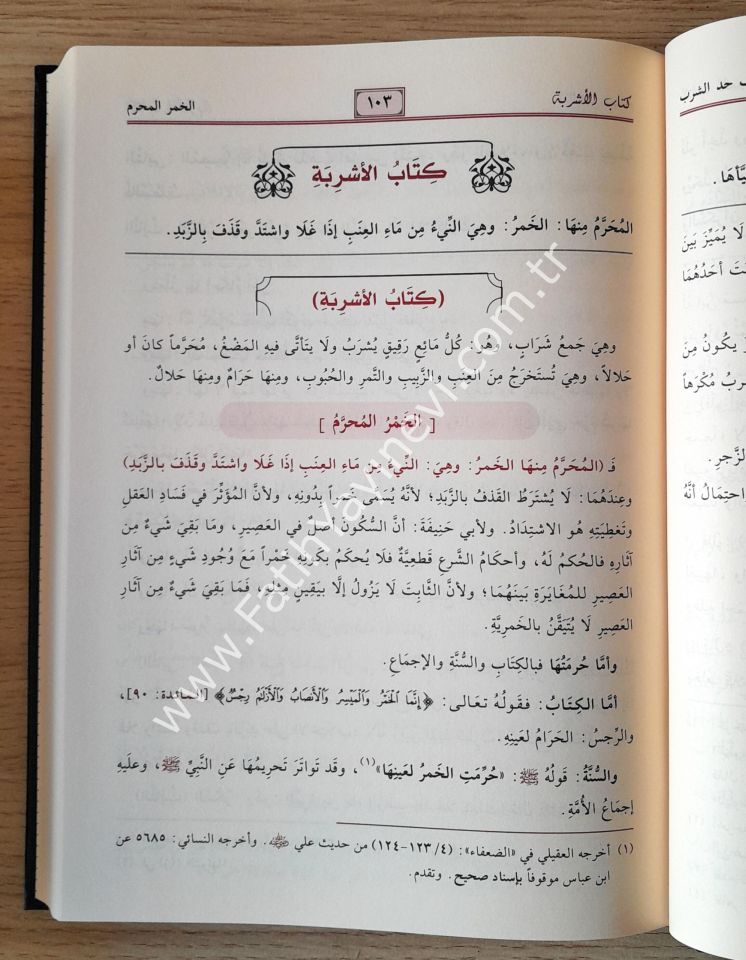 كتاب الأشربة
١٠٣
الخمر المحرم
كِتَابُ الأشرِبَةِ
المُحَرَّمُ مِنهَا: الخَمرُ: وهِيَ النِّيءُ مِن مَاءِ العِنَبِ إذَا غَلَا واشتَدَّ وقَذَفَ بِالزَّبَدِ.
(كِتَابُ الأشرِبَةِ)
وهِيَ جَمعُ شَرَابٍ، وهُوَ: كُلُّ مائِعٍ رَقِيقٍ يُشرَبُ ولَا يَتأتَّى فيهِ المَضْغُ، مُحَرَّماً كانَ أو
حَلالاً، وهِيَ تُستَخرَجُ مِنَ العِنَبِ والزَّبِيبِ والتَّمرِ والحُبُوبِ، ومِنهَا حَرَامٌ ومِنهَا حَلالٌ.
[ الخَمْرُ المُحرَّمُ ]
فَـ (المُحَرَّمُ مِنهَا الخَمرُ: وهِيَ: النِّيءُ مِن مَاءِ العِنَبِ إذَا غَلَا واشتَدَّ وقَذَفَ بالزَّبَدِ)
وعِندَهُمَا: لَا يُشتَرَطُ القَذفُ بالزَّبَدِ؛ لأنَّهُ يُسَمَّى خَمراً بِدُونِهِ، ولأنَّ المُؤَثِّرَ في فَسَادِ العَقلِ
وتَغطِيَتِهِ هُو الاشتِدَادُ. ولأبي حَنِيفَةَ: أنَّ السُّكُونَ أصلٌ في العَصِيرِ، ومَا بَقِيَ شَيءٌ مِن
آثارِهِ فالحُكمُ لَهُ، وأحكَامُ الشَّرعِ قَطعِيَّةٌ فَلا يُحكَمُ بكَونِهِ خَمْراً مَعَ وُجُودِ شَيءٍ مِن آثَارِ
العَصِيرِ للمُغَايَرَةِ بَينَهُمَا؛ ولأنَّ الثَّابِتَ لَا يَزُولُ إلَّا بيَقِينٍ مِثلِهِ، فَمَا بَقِيَ شَيءٌ مِن آثَارِ
العَصِيرِ لَا يُتَيَقَّنُ بالخَمرِيَّةِ.
وأمَّا حُرمَتُهَا فبالكِتَابِ والسُّنَّةِ والإجمَاعِ.
أمَّا الكِتَابُ: فقَولُهُ تعَالى: ﴿إِنَّمَا الْخَمْرُ وَالْمَيْسِرُ وَالْأَنْصَابُ وَالْأَزْلَامُ رِجْسٌ﴾ [المائدة: ٩٠]،
والرِّجسُ: الحَرَامُ لعَينِهِ.
والسُّنَّةُ: قَولُهُ ﷺ: «حُرِّمَتِ الخَمرُ لعَينِهَا»(١)، وقَد تَواتَرَ تَحرِيمُهَا عَنِ النَّبِيِّ ﷺ، وعلَيهِ
إجمَاعُ الأُمَّةِ.
(١) أخرجه العقيلي في «الضعفاء»: (٤/ ١٢٣-١٢٤) من حديث علي ﷺ. وأخرجه النسائي: ٥٦٨٥ عن
ابن عباس موقوفاً بإسناد صحيح. وتقدم.
حد الشرب
لَا يُمَيِّزُ بَينَ
أحَدُهُمَا
يَكُونُ مِنَ
مُكْرَهاً
احتِمَالُ أنَّهُ
www.FatihYayinevi.com.tr